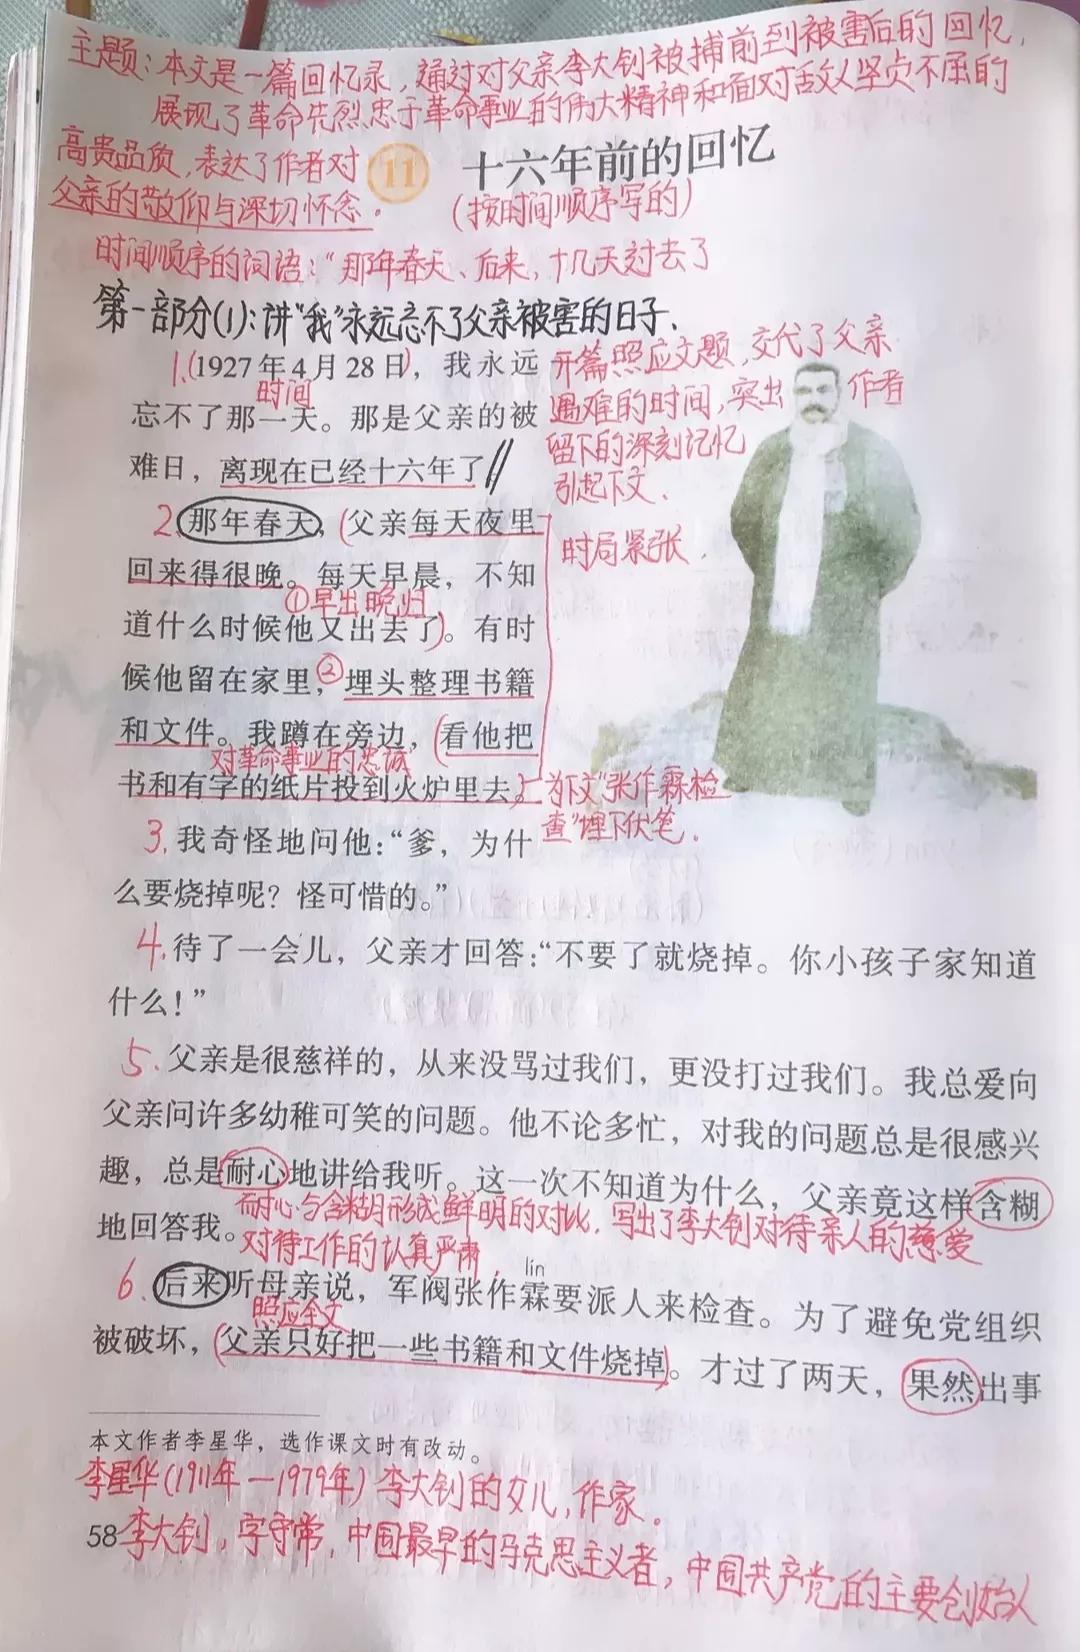 主题：本文是一篇回忆录，通过对父亲李大钊被捕前到被害后的回忆，
展现了革命先烈忠于革命事业的伟大精神和面对敌人坚贞不屈的
高贵品质，表达了作者对
父亲的敬仰与深切怀念。
11 十六年前的回忆
（按时间顺序写的）
时间顺序的词语：“那年春天、后来，十几天过去了
第一部分(1)：讲“我”永远忘不了父亲被害的日子.
1.(1927年4月28日)，我永远
时间
忘不了那一天。那是父亲的被
难日，离现在已经十六年了。
开篇照应文题，交代了父亲
遇难的时间，突出作者
留下的深刻记忆
引起下文.
2.那年春天，(父亲每天夜里
回来得很晚。每天早晨，不知
①早出晚归
道什么时候他又出去了)。有时
候他留在家里，②埋头整理书籍
和文件。我蹲在旁边，(看他把
对革命事业的忠诚
书和有字的纸片投到火炉里去。)
时局紧张.
为下文“张作霖检
查”埋下伏笔.
3.我奇怪地问他：“爹，为什
么要烧掉呢？怪可惜的。”
4.待了一会儿，父亲才回答：“不要了就烧掉。你小孩子家知道
什么！”
5.父亲是很慈祥的，从来没骂过我们，更没打过我们。我总爱向
父亲问许多幼稚可笑的问题。他不论多忙，对我的问题总是很感兴
趣，总是耐心地讲给我听。这一次不知道为什么，父亲竟这样含糊
地回答我。
耐心与含糊形成鲜明的对比.写出了李大钊对待亲人的慈爱
对待工作的认真严肃，
lín
6.后来听母亲说，军阀张作霖要派人来检查。为了避免党组织
照应全文
被破坏，(父亲只好把一些书籍和文件烧掉)。才过了两天，果然出事
本文作者李星华，选作课文时有改动。
李星华(1911年—1979年)李大钊的女儿，作家。
58
李大钊，字守常，中国最早的马克思主义者，中国共产党的主要创始人